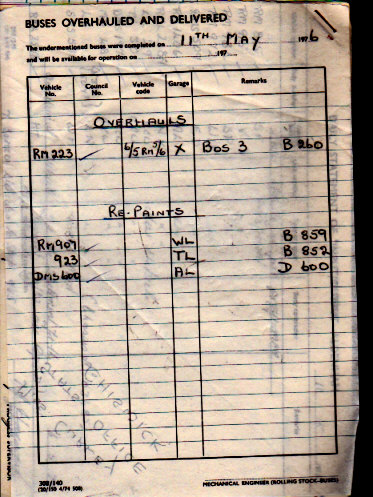 BUSES OVERHAULED AND DELIVERED
The undermentioned buses were completed on 11TH MAY 1976
and will be available for operation on 197
Vehicle No. Council No. Vehicle code Garage Remarks
OVERHAULS
RM 223 ✓ 6/5 RM 5/6 X BOS 3 B 260
RE-PAINTS
RM 907 ✓ WL B 859
923 ✓ TL B 852
DMS 600 ✓ AL D 600
CHISWICK
STATS OFFICE
308/140
(20/150 4/74 508)
MECHANICAL ENGINEER (ROLLING STOCK—BUSES)